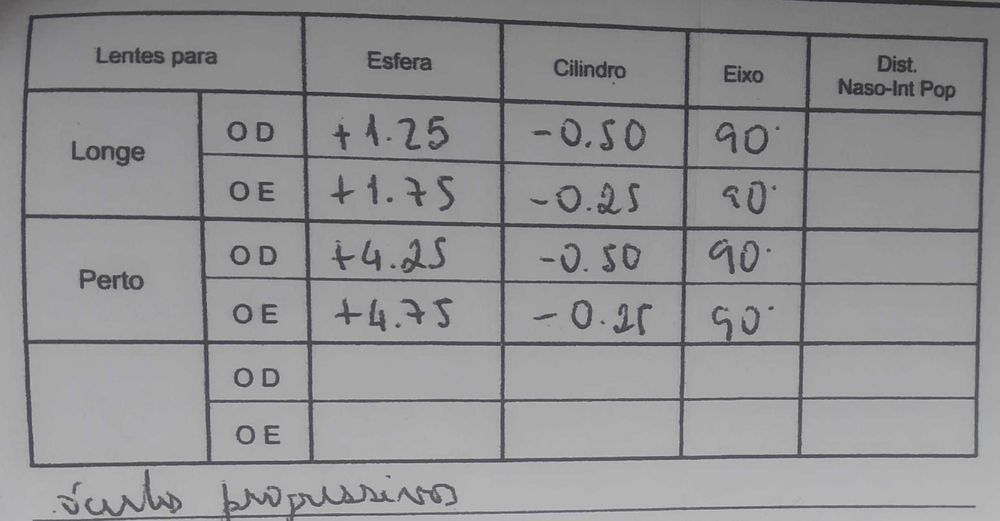 Lentes para Esfera Cilindro Eixo Dist. Naso-Int Pop
Longe OD +1.25 -0.50 90°
OE +1.75 -0.25 90°
Perto OD +4.25 -0.50 90°
OE +4.75 -0.25 90°
OD
OE
óculos progressivos